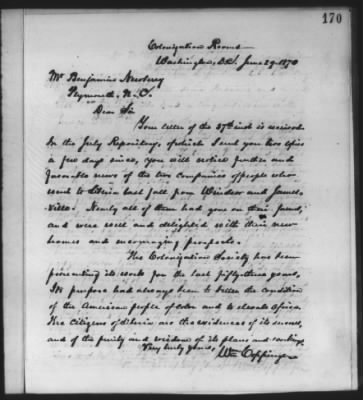 170
Colonization Rooms
Washington, D.C. June 29. 1870
Mr Benjamin Newberry
Plymouth. N. C.
Dear Sir
Your letter of the 27th inst is received.
In the July Repository, of which I send you two copies
a few days since, you will notice further and
favorable news of the two companies of people who
went to Liberia last fall from Windsor and James-
ville. Nearly all of them had gone on their farms,
and were well and delighted with their new
homes and encouraging prospects.
The Colonization Society has been
prosecuting its work for the last fifty-three years.
Its purpose had always been to better the condition
of the American people of color and to elevate Africa.
The citizens of Liberia are the evidences of its success,
and of the purity and wisdom of its plans and working.
Very truly yours, Wm Coppinger